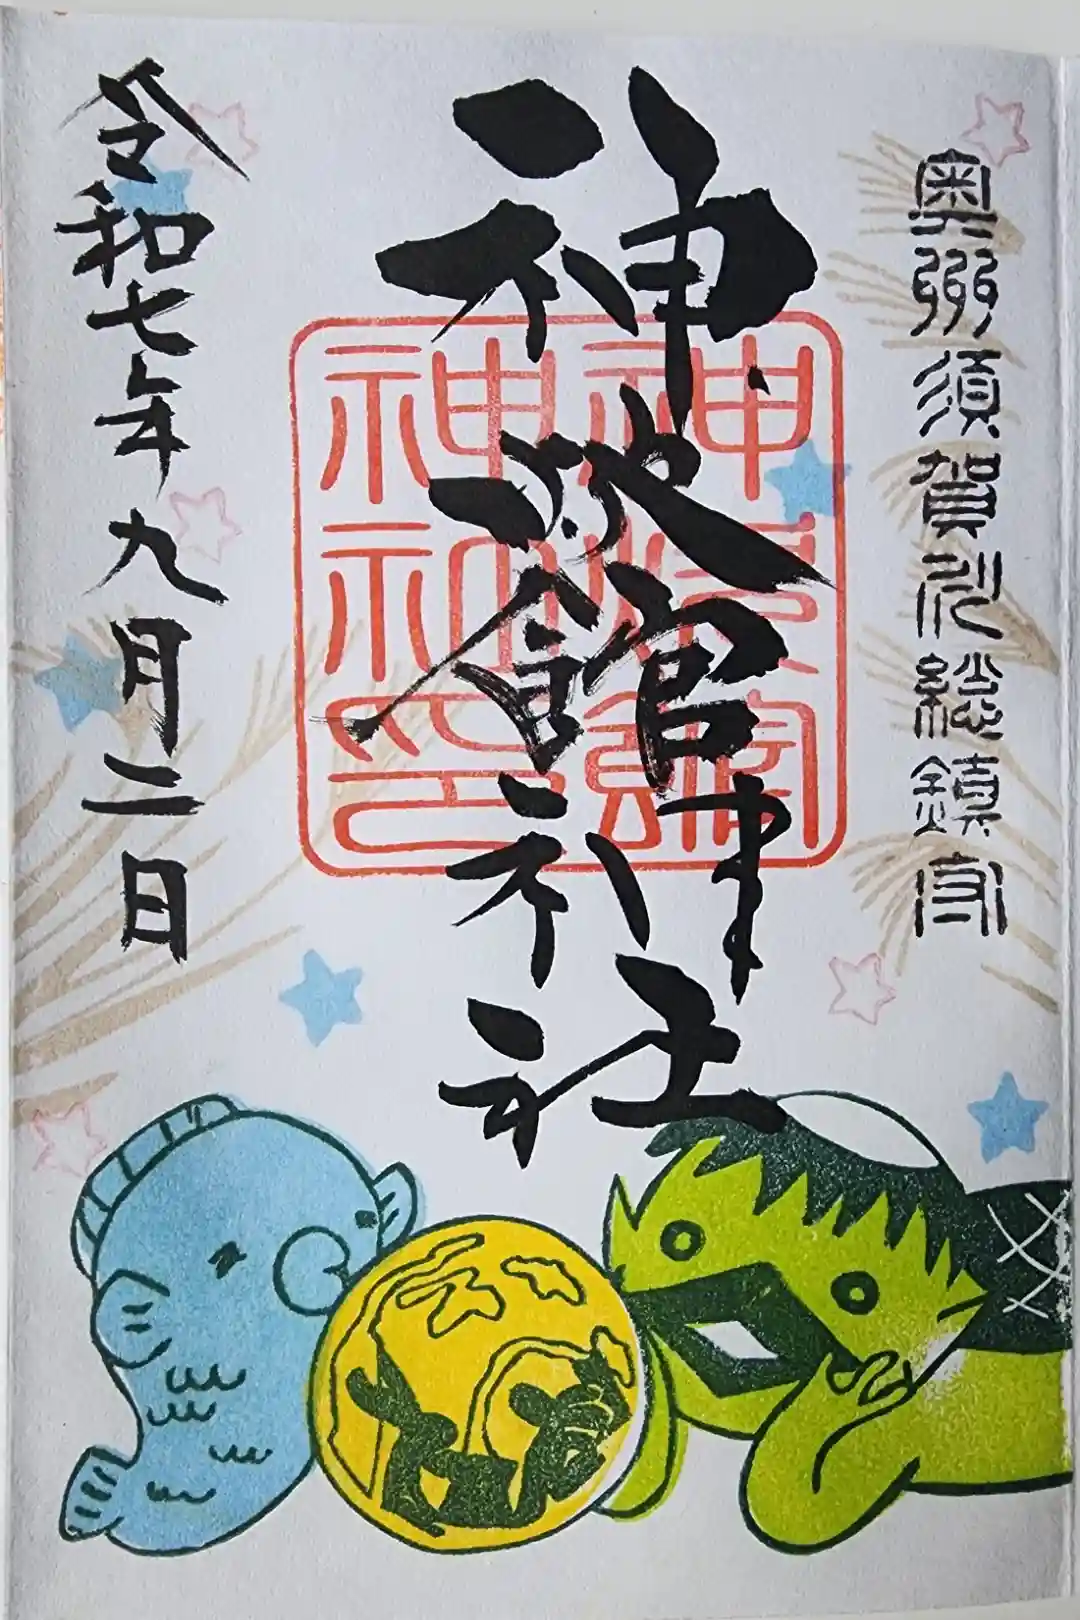 奥州須賀川総鎮守
神炊館神社
神炊館
神社印
令和七年九月二日